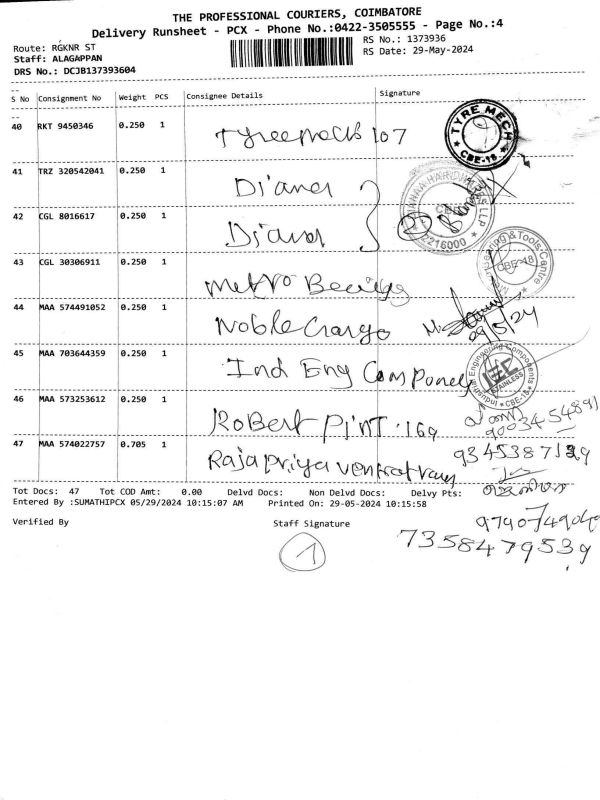 THE PROFESSIONAL COURIERS, COIMBATORE
Delivery Runsheet - PCX - Phone No.:0422-3505555 - Page No.:4
Route: RGKNR ST
RS No.: 1373936
Staff: ALAGAPPAN
RS Date: 29-May-2024
DRS No.: DCJB137393604
S No Consignment No Weight PCS Consignee Details Signature
40 RKT 9450346 0.250 1 Tyremech 107
TYRE MECH
* CBE-18 *
41 TRZ 320542041 0.250 1 Diana
42 CGL 8016617 0.250 1 Diana
2216000
43 CGL 30306911 0.250 1 Metro
& Tools Centre
CBE-18
44 MAA 574491052 0.250 1 Noble Cargo
29/5/24
45 MAA 703644359 0.250 1 Ind Eng Componey
Industrial Engineering Components
IEC
STAINLESS
* CBE-18 *
46 MAA 573253612 0.250 1 Robert Pint. 169
9003454891
47 MAA 574022757 0.705 1 Rajapriya
9345387139
Tot Docs: 47 Tot COD Amt: 0.00 Delvd Docs: Non Delvd Docs: Delvy Pts:
Entered By :SUMATHIPCX 05/29/2024 10:15:07 AM Printed On: 29-05-2024 10:15:58
Verified By Staff Signature
9790749040
1
7358479539